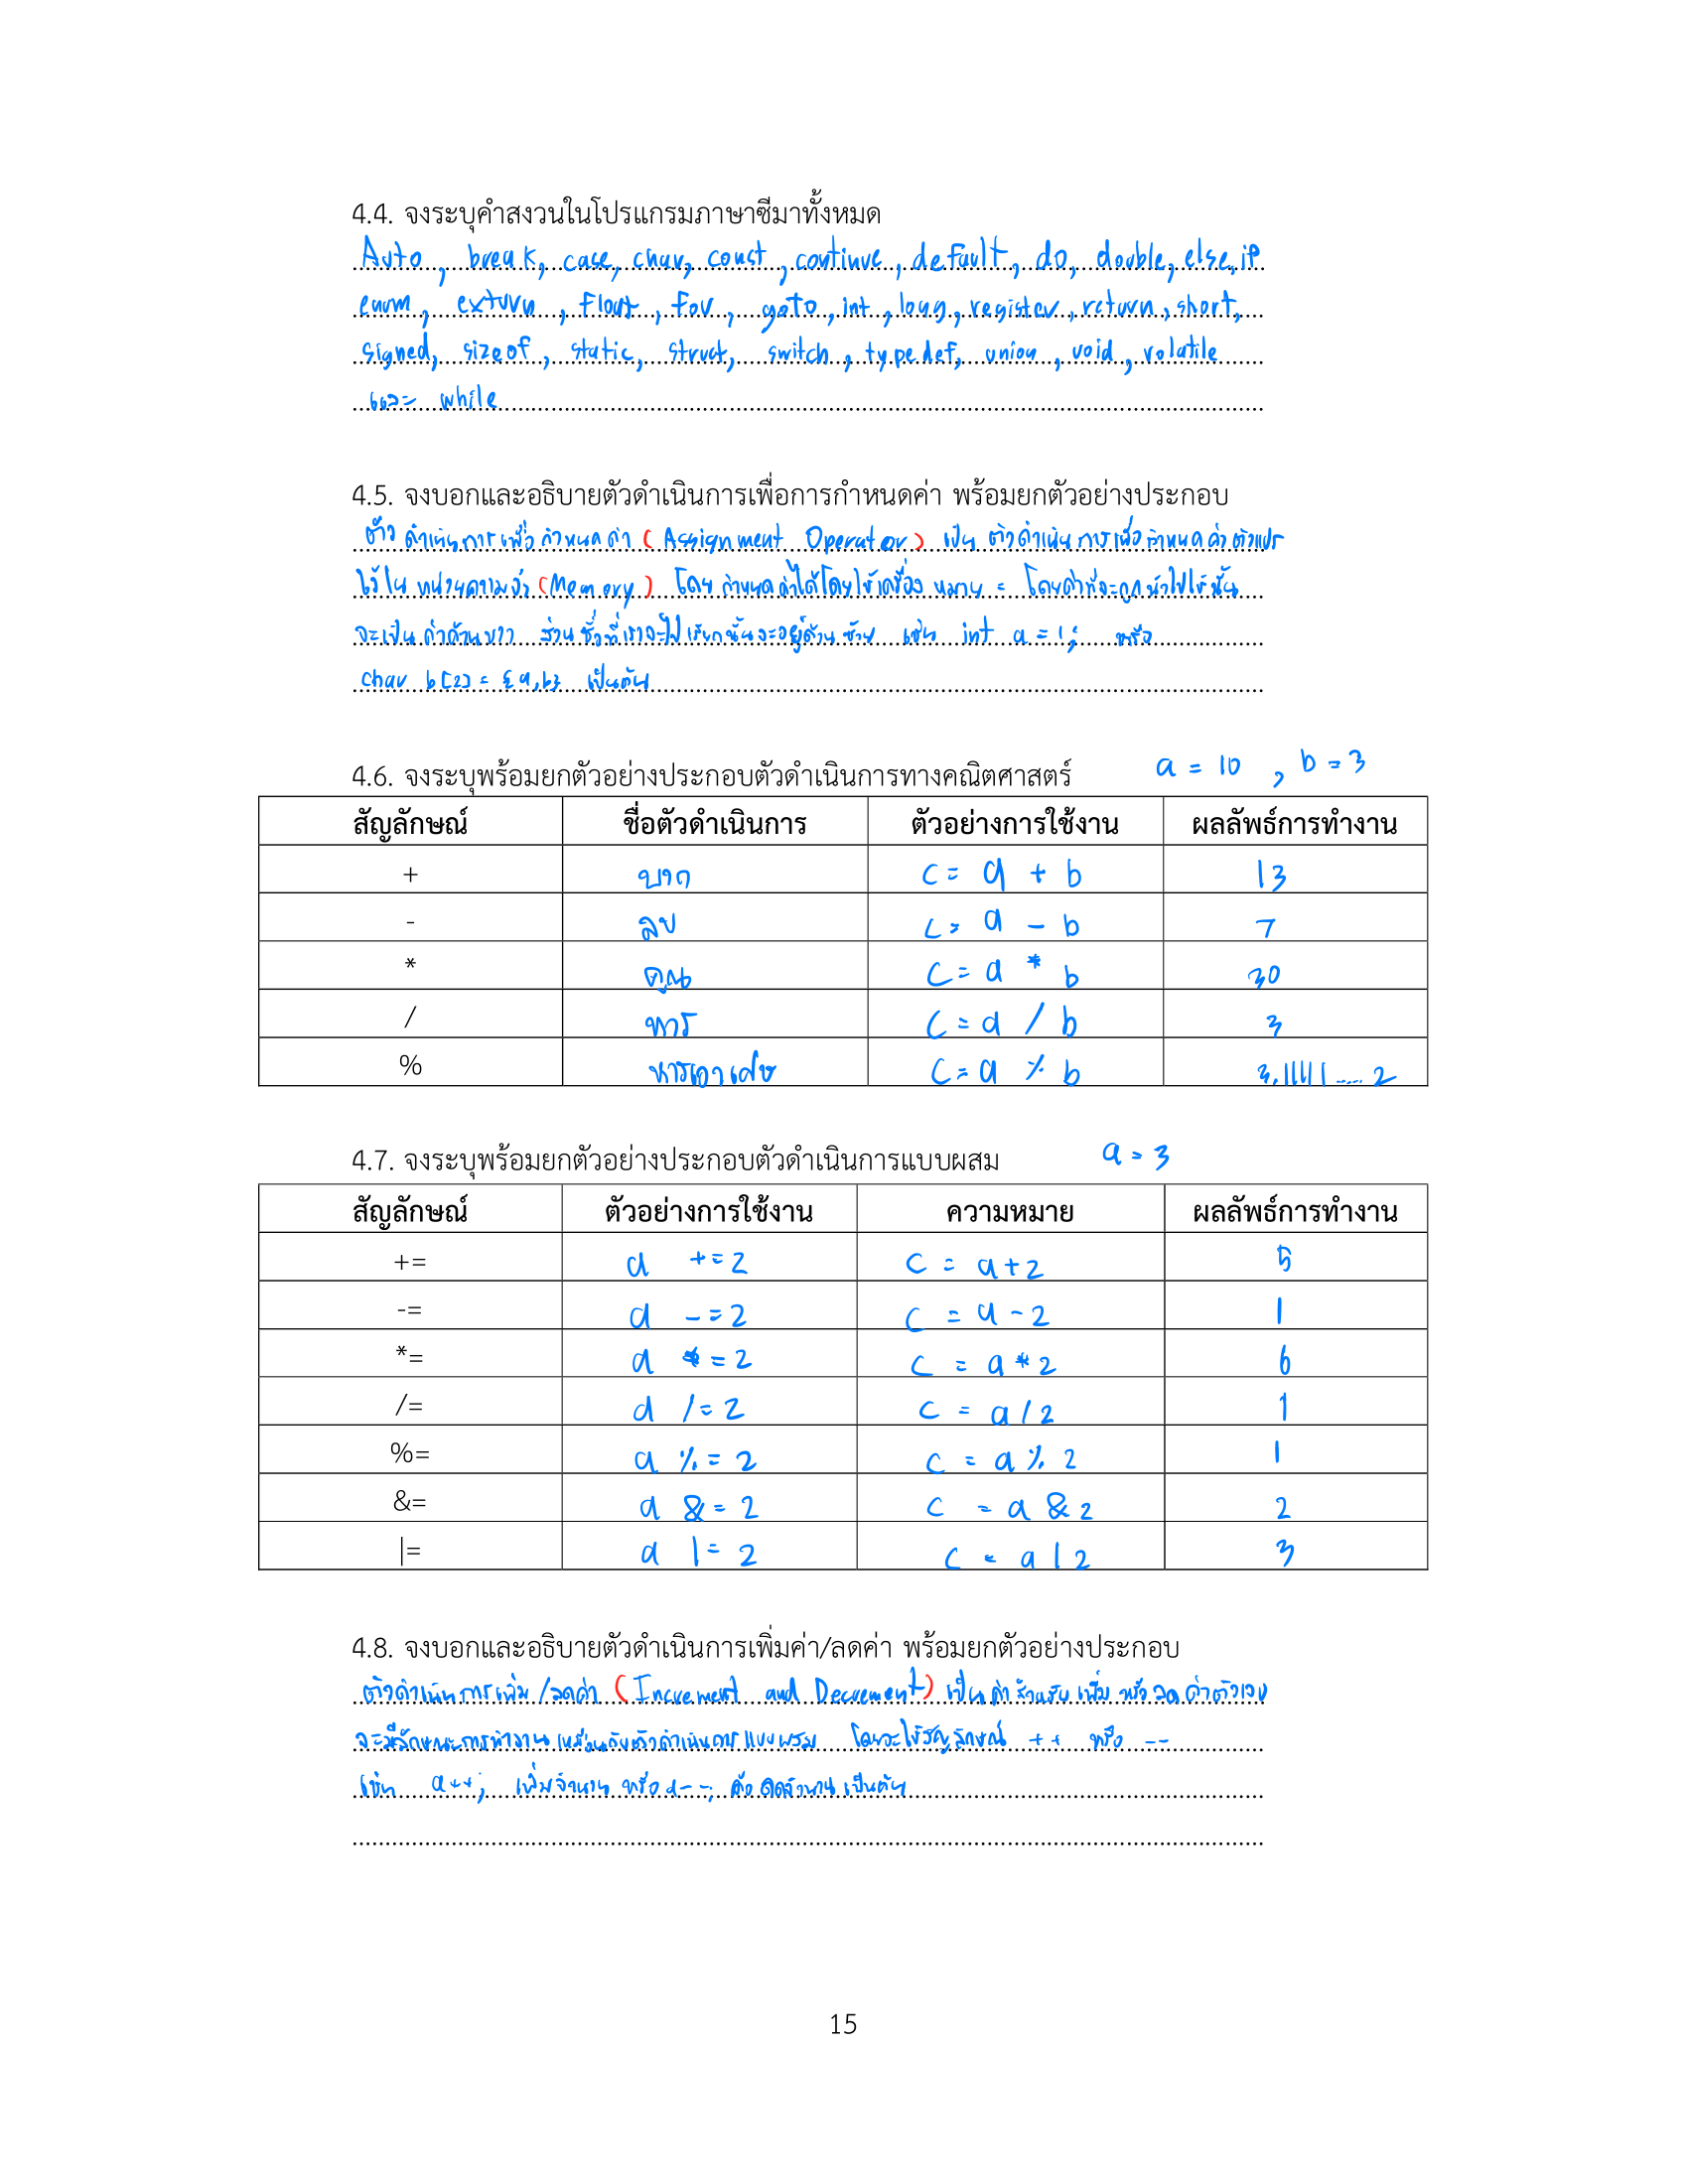 4.4. จงระบุคำสงวนในโปรแกรมภาษาซีมาทั้งหมด
Auto, break, case, char, const, continue, default, do, double, else, if
enum, extern, float, for, goto, int, long, register, return, short,
signed, sizeof, static, struct, switch, typedef, union, void, volatile
และ while
4.5. จงบอกและอธิบายตัวดำเนินการเพื่อการกำหนดค่า พร้อมยกตัวอย่างประกอบ
ตัวดำเนินการเพื่อกำหนดค่า (Assignment Operator) เป็นตัวดำเนินการเพื่อกำหนดค่าตัวแปร
ไว้ในหน่วยความจำ (Memory) โดยกำหนดค่าได้โดยใช้เครื่องหมาย = โดยค่าที่จะถูกนำไปใช้นั้น
จะเป็นค่าด้านขวา ส่วนชื่อที่เราจะไปเรียกนั้นจะอยู่ด้านซ้าย เช่น int a = 1; หรือ
char b[2] = {a,b} เป็นต้น
4.6. จงระบุพร้อมยกตัวอย่างประกอบตัวดำเนินการทางคณิตศาสตร์ a = 10 , b = 3
สัญลักษณ์ ชื่อตัวดำเนินการ ตัวอย่างการใช้งาน ผลลัพธ์การทำงาน
+ บวก c = a + b 13
- ลบ c = a - b 7
* คูณ c = a * b 30
/ หาร c = a / b 3
% หารเอาเศษ c = a % b 3.11111.....2
4.7. จงระบุพร้อมยกตัวอย่างประกอบตัวดำเนินการแบบผสม a = 3
สัญลักษณ์ ตัวอย่างการใช้งาน ความหมาย ผลลัพธ์การทำงาน
+= a += 2 c = a + 2 5
-= a -= 2 c = a - 2 1
*= a *= 2 c = a * 2 6
/= a /= 2 c = a / 2 1
%= a %= 2 c = a % 2 1
&= a &= 2 c = a & 2 2
|= a |= 2 c = a | 2 3
4.8. จงบอกและอธิบายตัวดำเนินการเพิ่มค่า/ลดค่า พร้อมยกตัวอย่างประกอบ
ตัวดำเนินการเพิ่ม/ลดค่า (Increment and Decrement) เป็นค่าสำหรับเพิ่ม หรือ ลด ค่าตัวเอง
จะมีลักษณะการทำงานเหมือนกับตัวดำเนินการแบบผสม โดยจะใช้สัญลักษณ์ ++ หรือ --
เช่น a++; เพิ่มจำนวน หรือ a--; คือ ลดจำนวน เป็นต้น
15